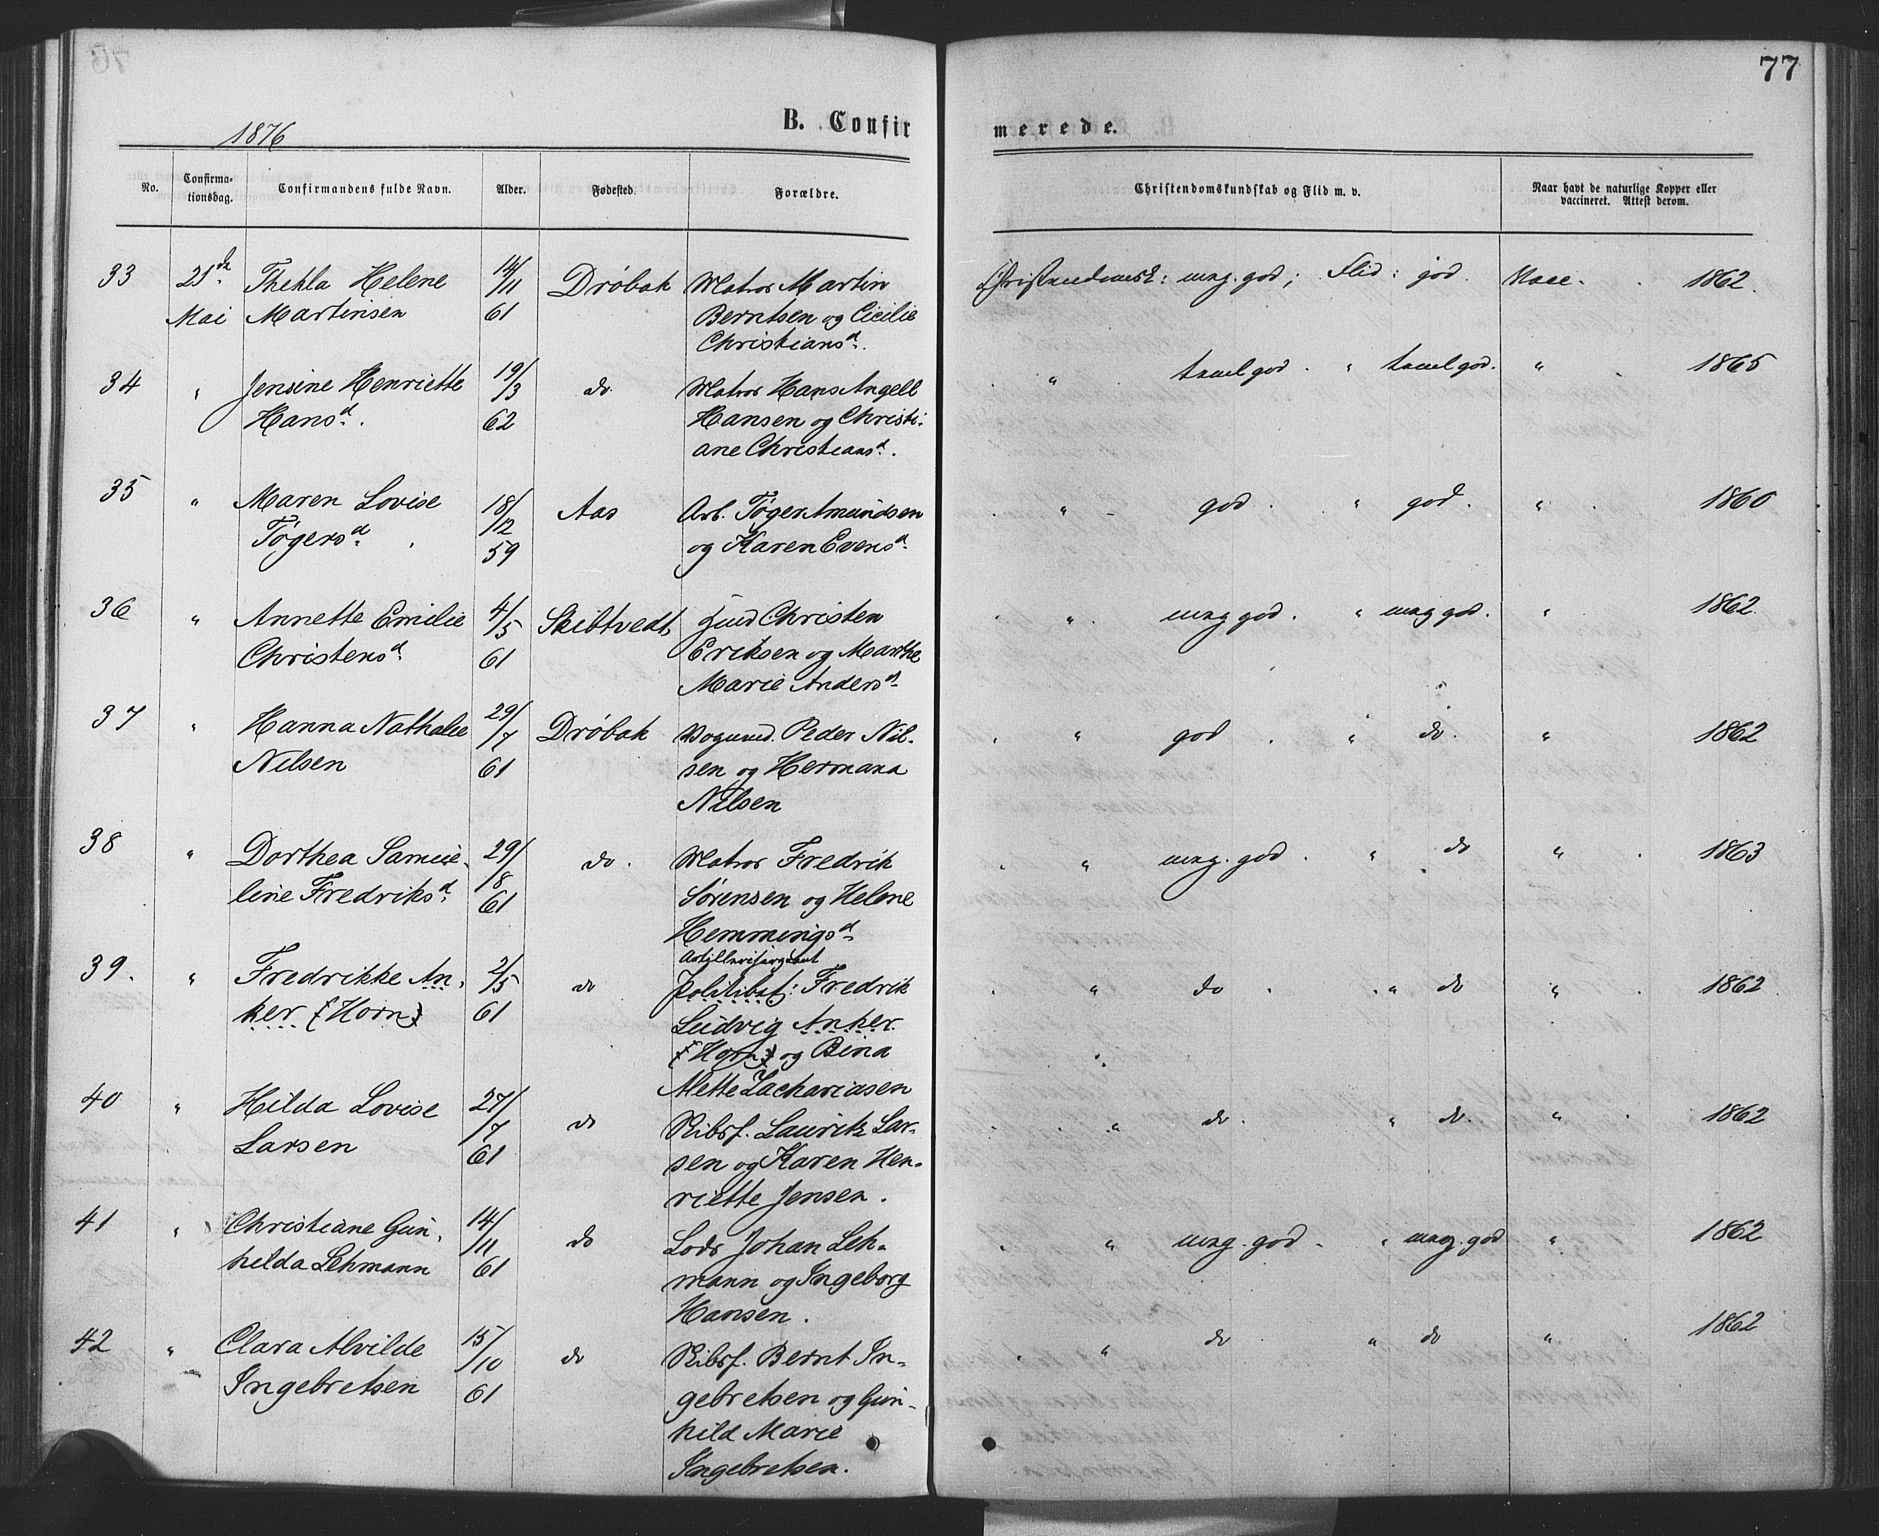 77
1876
B. Confirmerede.
No. Confirmationsdag. Confirmandens fulde Navn. Alder. Fødested. Forældre. Christendomskundskab og Flid m. v. Naar havt de naturlige Kopper eller vaccineret. Attest derom.
33 21de Mai Thekla Helene Martinsen 14/11 61 Drøbak Matros Martin Berntsen og Cicilie Christiansd. Christendomsk: meg. god; Flid: god. Vacc. 1862.
34 " Jensine Henriette Hansd. 19/3 62 do Matros Hans Angell Hansen og Christiane Christiansd. " temel god. " temel god. " 1865
35 " Maren Lovise Tøgersd. 18/12 59 Aas Arb. Tøger Amundsen og Karen Evensd. " god. " god. " 1860
36 " Annette Emilie Christensd. 4/5 61 Skibtvedt Christen Eriksen og Marthe Marie Andersd. " meg god. " meg god. " 1862
37 " Hanna Nathalie Nilsen 29/7 61 Drøbak Peder Nilsen og Hermana Nilsen " god. " do. " 1862
38 " Dorthea Samueline Fredriksd. 29/8 61 do. Matros Fredrik Sørensen og Helene Hemmingsd. " meg. god. " do " 1863
39. " Fredrikke Anker (Horn) 2/5 61 do Artillerisergeant Politibetj: Fredrik Ludvig Anker (Horn) og Bina Mette Zachariasen " do " do " 1862
40 " Hilda Lovise Larsen 27/7 61 do Skibsf. Lauritz Larsen og Karen Henriette Jensen. " do. " do. " 1862
41 " Christiane Gunhilda Lehmann 14/11 61 do Lods Johan Lehmann og Ingeborg Hansen. " meg. god. " meg. god " 1862
42 " Clara Alvilde Ingebretsen 15/10 61 do Skibsf. Bernt Ingebretsen og Gunhild Marie Ingebretsen. " do " do " 1862